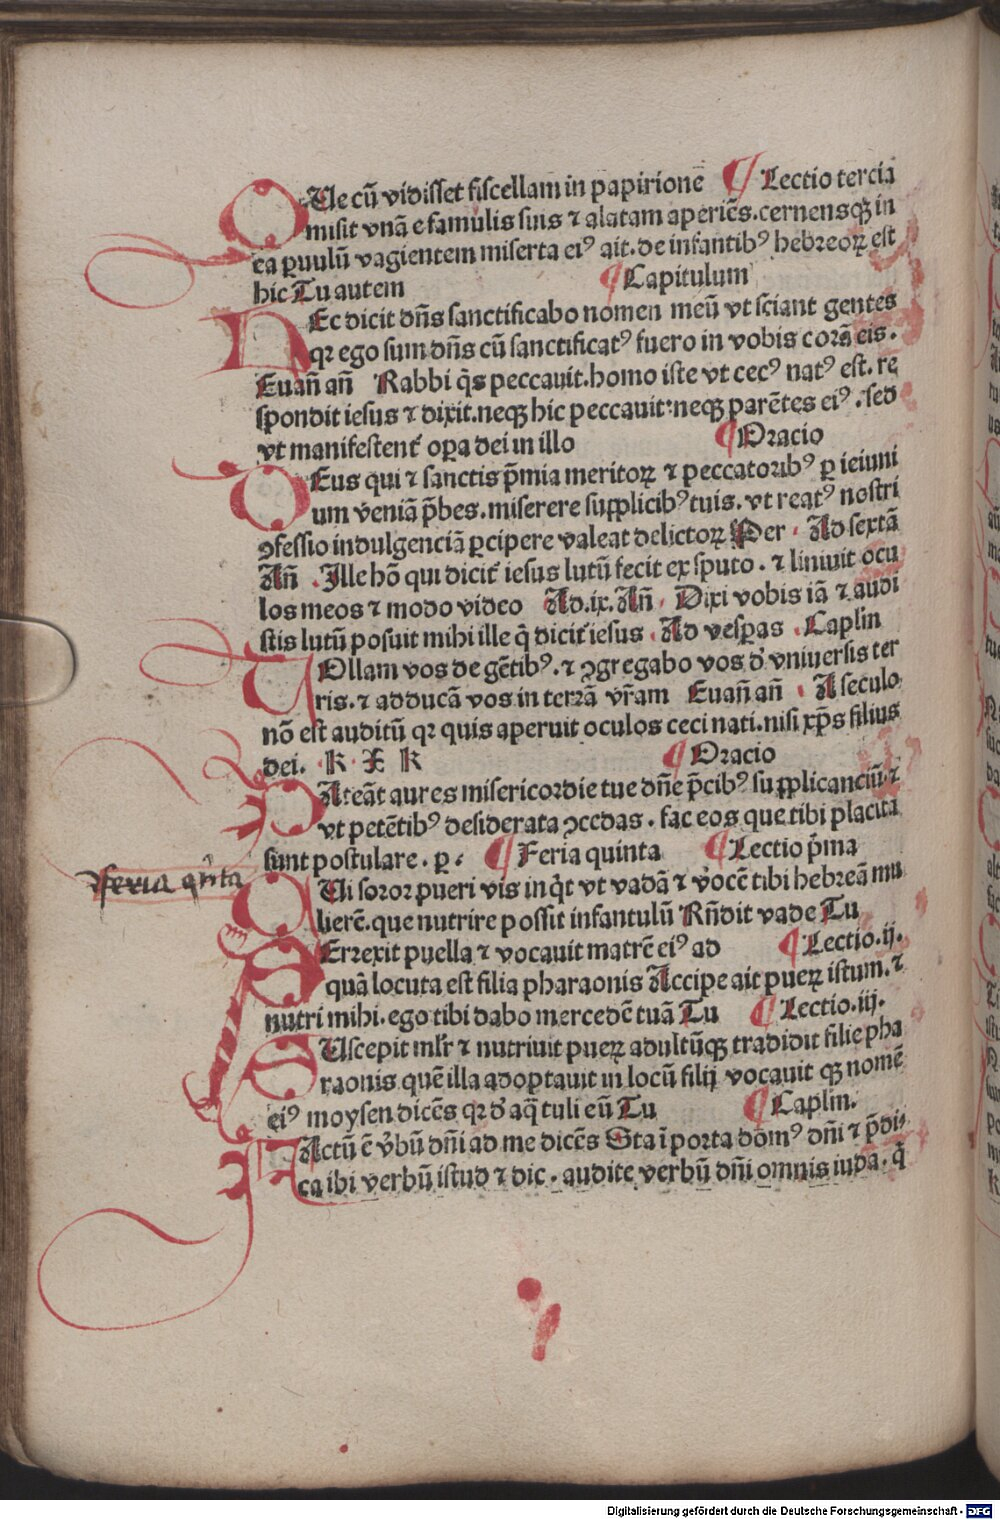 QUe cū vidisset fiscellam in papirione ¶ Lectio tercia
misit vnā e famulis suis ⁊ alatam aperiēs.cernensqꝫ in
ea ꝑuulū vagientem miserta eiꝰ ait.de infantibꝰ hebreoꝝ est
hic Tu autem ¶ Capitulum
HEc dicit dn̄s sanctificabo nomen meū vt sciant gentes
qꝛ ego sum dn̄s cū sanctificatꝰ fuero in vobis corā eis.
Euan̄ an̄ Rabbi q̄s peccauit.homo iste vt cecꝰ natꝰ est.re
spondit iesus ⁊ dixit.neqꝫ hic peccauit:neqꝫ parētes eiꝰ.sed
vt manifestent᷑ oꝑa dei in illo ¶ Oracio
DEus qui ⁊ sanctis p̄mia meritoꝝ ⁊ peccatoribꝰ ꝑ ieiuni
um veniā p̄bes.miserere supplicibꝰ tuis.vt reatꝰ nostri
ꝯfessio indulgenciā ꝑcipere valeat delictoꝝ Per Ad sextā
An̄ .Ille hō qui dicit᷑ iesus lutū fecit ex sputo.⁊ liniuit ocu
los meos ⁊ modo video Ad.ix.An̄ Dixi vobis iā ⁊ audi
stis lutū posuit mihi ille q̄ dicit᷑ iesus .Ad vesꝑas .Caplin
TOllam vos de gētibꝰ.⁊ ꝯgregabo vos d̓ vniuersis ter
ris.⁊ adducā vos in terrā vr̄am Euan̄ an̄ A seculo
nō est auditū qꝛ quis aperuit oculos ceci nati.nisi xp̄s filius
dei. k x k ¶ Oracio
PAteāt aures misericordie tue dn̄e p̄cibꝰ supplicanciū.⁊
vt petētibꝰ desiderata ꝯcedas.fac eos que tibi placita
sunt postulare.ꝑ: ¶ Feria quinta ¶ Lectio p̄ma
feria qn̄ta
QUi soror pueri vis inq̇t vt vadā ⁊ vocē tibi hebreā mu
lierē.que nutrire possit infantulū Rn̄dit vade Tu
PErrexit puella ⁊ vocauit matrē eiꝰ ad ¶ Lectio.ij.
quā locuta est filia pharaonis Accipe ait pueꝝ istum.⁊
nutri mihi.ego tibi dabo mercedē tuā Tu ¶ Lectio.iij.
SUscepit ml̓r ⁊ nutriuit pueꝝ adultūqꝫ tradidit filie pha
raonis quē illa adoptauit in locū filij vocauit qꝫ nomē
eiꝰ moysen dicēs qꝛ d̓ aq̄ tuli eū Tu ¶ Caplin.
FActū ē v̓bū dn̄i ad me dicēs Sta ī porta domꝰ dn̄i ⁊ p̄di:
ca ibi verbū istud ⁊ dic.audite verbū dn̄i omnis iuda.q̄
Digitalisierung gefördert durch die Deutsche Forschungsgemeinschaft - DFG